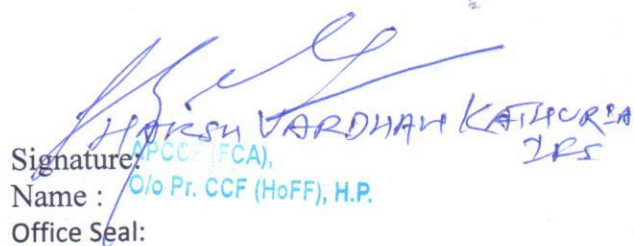 HARSH VARDHAN KATHURIA
IFS
Signature:
APCCF (FCA),
Name :
O/o Pr. CCF (HoFF), H.P.
Office Seal: